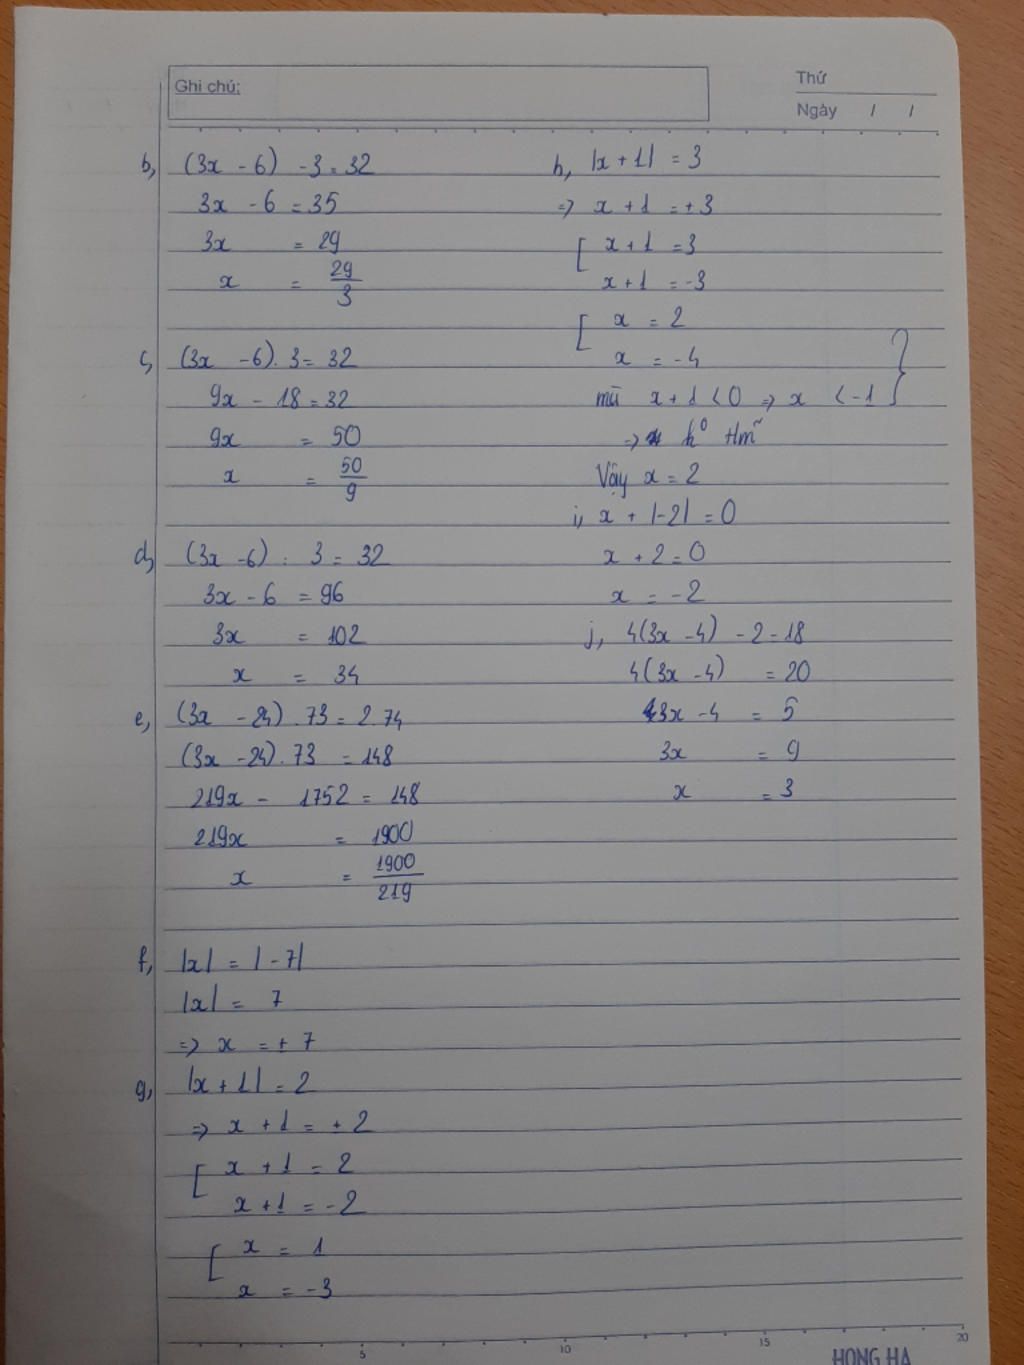 Ghi chú:
Thứ
Ngày / /
b, (3x - 6) - 3 = 32
3x - 6 = 35
3x = 29
x = 29/3
c, (3x - 6) . 3 = 32
9x - 18 = 32
9x = 50
x = 50/9
d, (3x - 6) : 3 = 32
3x - 6 = 96
3x = 102
x = 34
e, (3x - 24) . 73 = 2 . 74
(3x - 24) . 73 = 148
219x - 1752 = 148
219x = 1900
x = 1900/219
f, |x| = |-7|
|x| = 7
=> x = ± 7
g, |x + 1| = 2
=> x + 1 = ± 2
[ x + 1 = 2
x + 1 = -2
[ x = 1
x = -3
h, |x + 1| = 3
=> x + 1 = ± 3
[ x + 1 = 3
x + 1 = -3
[ x = 2
x = -4
mà x + 1 < 0 => x < -1 }
=> k° tm̃
Vậy x = 2
i, x + |-2| = 0
x + 2 = 0
x = -2
j, 4(3x - 4) - 2 = 18
4(3x - 4) = 20
3x - 4 = 5
3x = 9
x = 3
5 10 15 20
HONG HA